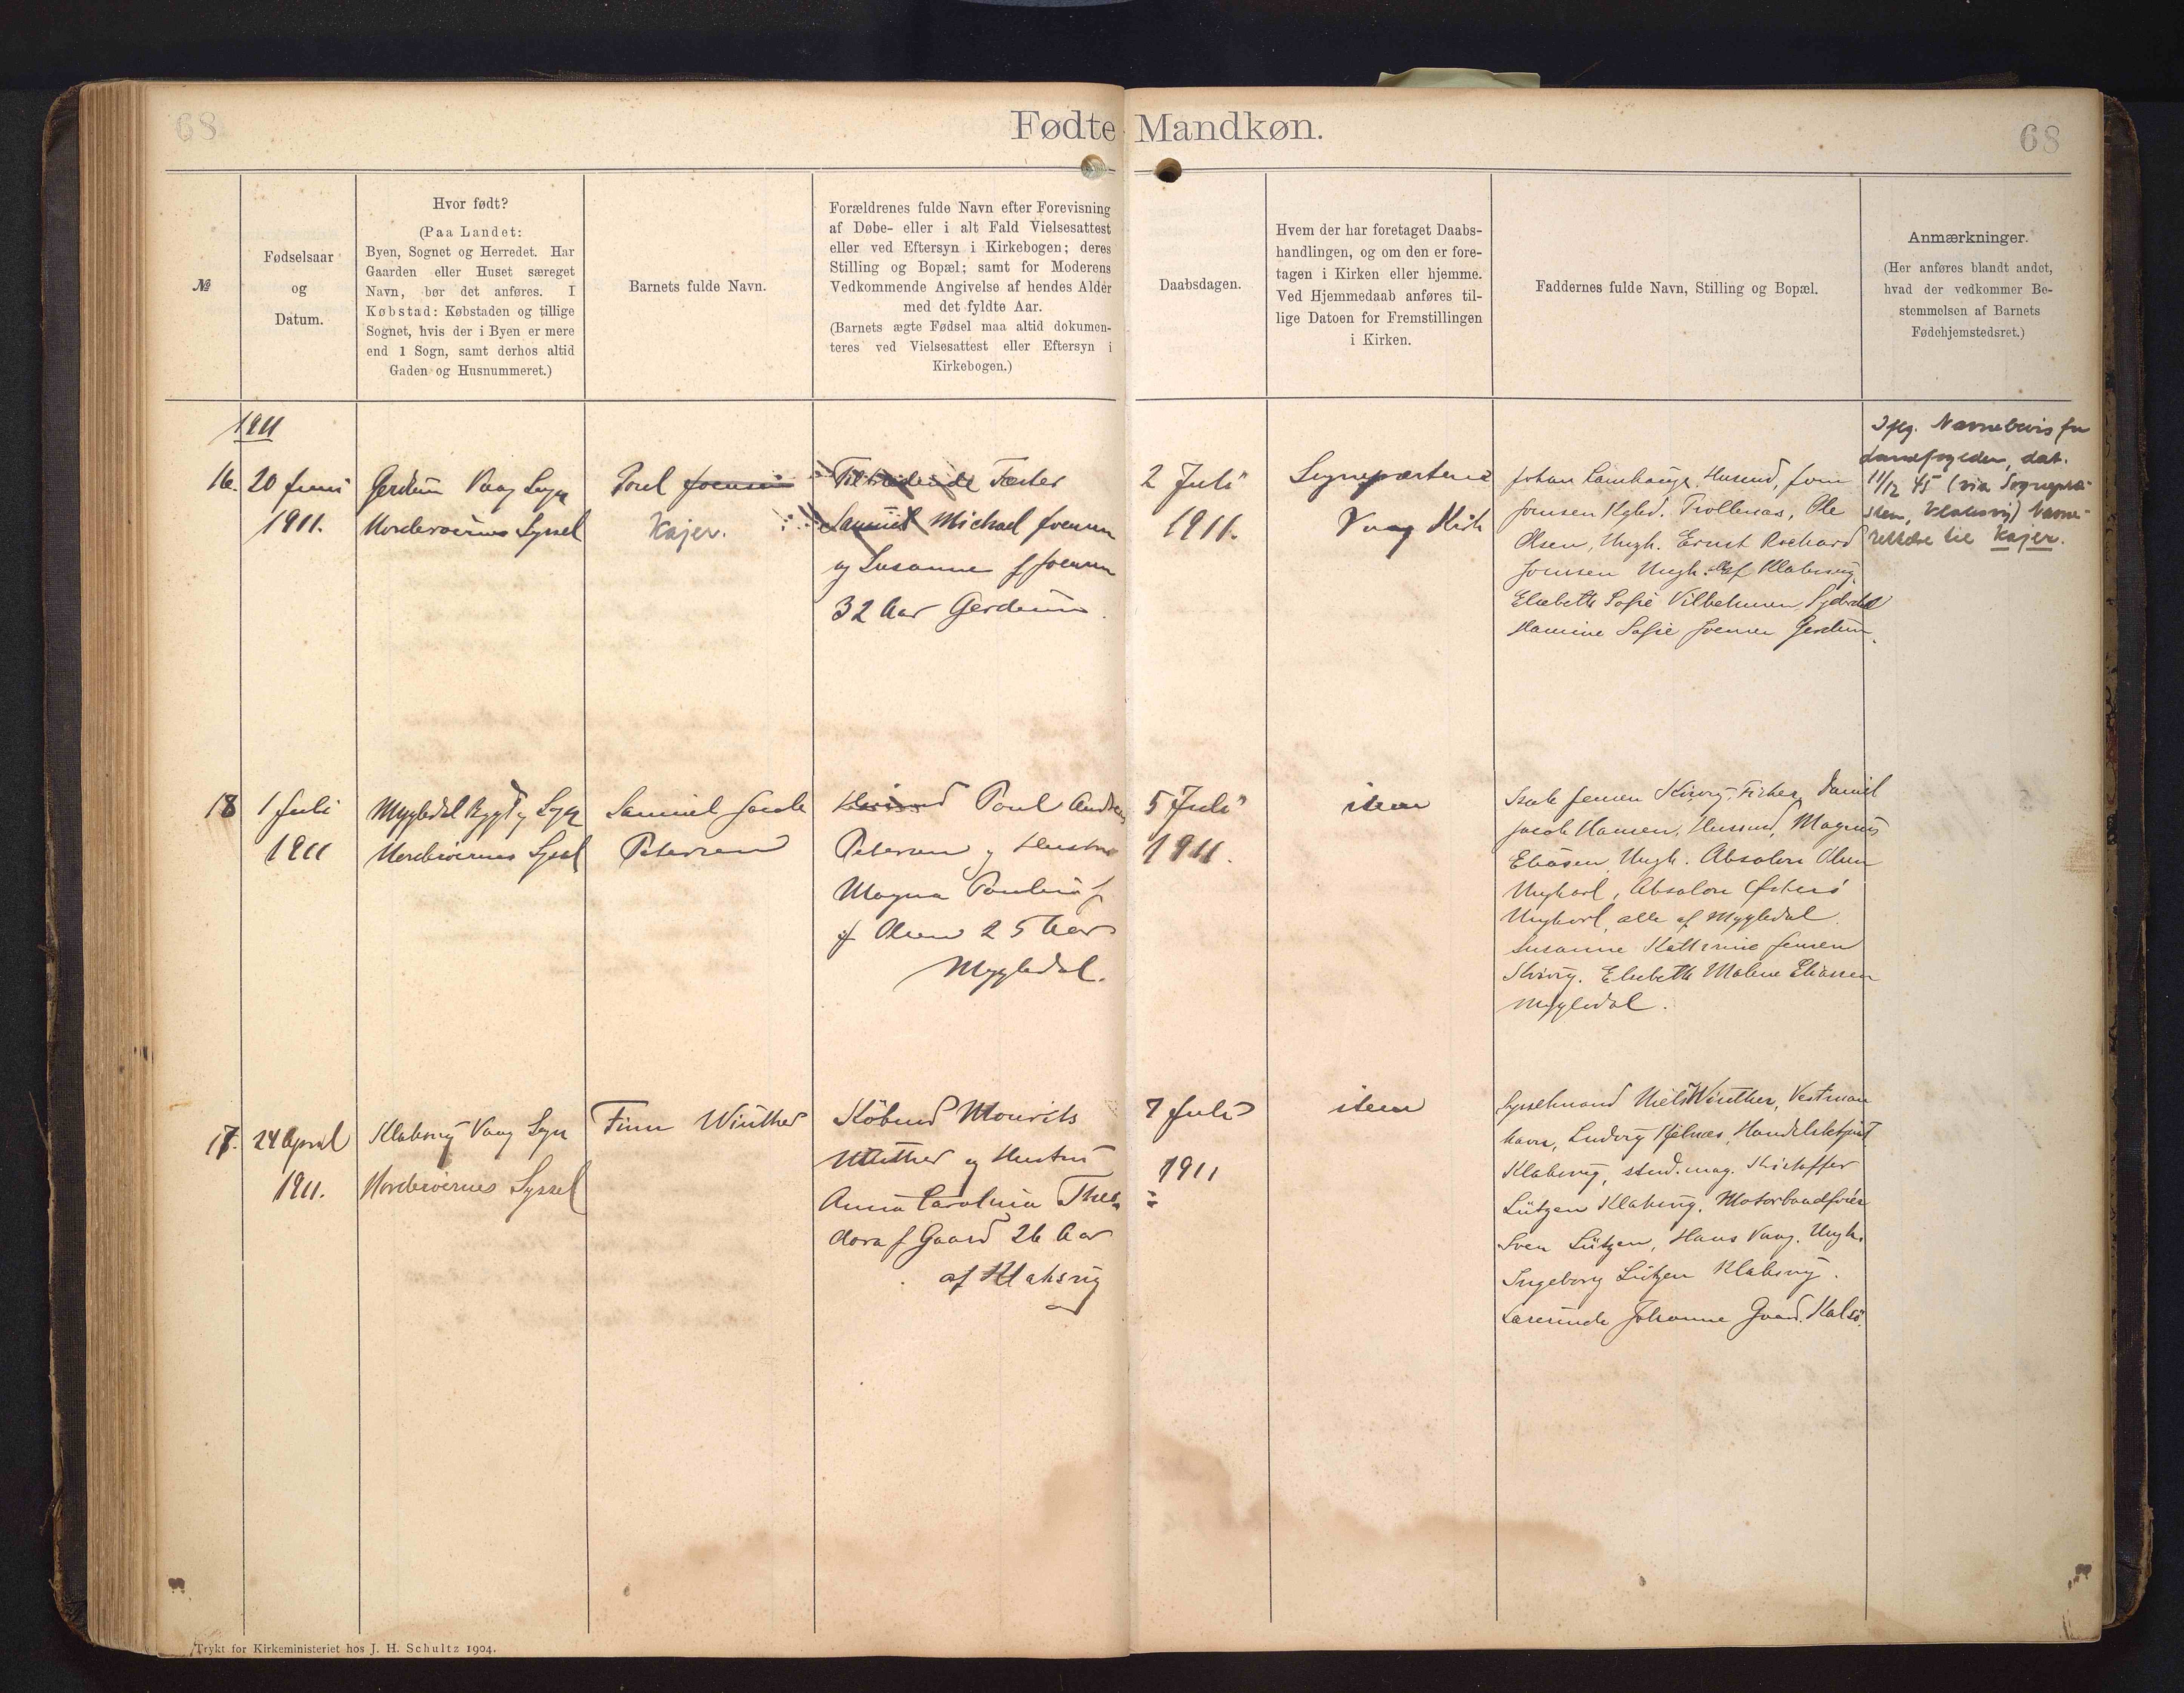 68
Fødte Mandkøn.
68
№
Fødselsaar
og
Datum.
Hvor født?
(Paa Landet:
Byen, Sognet og Herredet. Har
Gaarden eller Huset særeget
Navn, bør det anføres. I
Købstad: Købstaden og tillige
Sognet, hvis der i Byen er mere
end 1 Sogn, samt derhos altid
Gaden og Husnummeret.)
Barnets fulde Navn.
Forældrenes fulde Navn efter Forevisning
af Døbe- eller i alt Fald Vielsesattest
eller ved Eftersyn i Kirkebogen; deres
Stilling og Bopæl; samt for Moderens
Vedkommende Angivelse af hendes Alder
med det fyldte Aar.
(Barnets ægte Fødsel maa altid dokumen-
teres ved Vielsesattest eller Eftersyn i
Kirkebogen.)
Daabsdagen.
Hvem der har foretaget Daabs-
handlingen, og om den er fore-
tagen i Kirken eller hjemme.
Ved Hjemmedaab anføres til-
lige Datoen for Fremstillingen
i Kirken.
Faddernes fulde Navn, Stilling og Bopæl.
Anmærkninger.
(Her anføres blandt andet,
hvad der vedkommer Be-
stemmelsen af Barnets
Fødehjemstedsret.)
1911
16.
20 Juni
1911.
Gerdum Vaag Sogn
Norderøernes Syssel
Poul Joensen
Kajer.
Tiltrædende Fæster
Samuel Michael Joensen
og Susanne f Joensen
32 Aar Gerdum.
2 Juli
1911.
Sognepræsten
Vaag Kirk
Johan Lamhauge, Husmd,
Joensen Kgbd. Trollenæs, Ole
Olsen, Ungk. Ernst Richard
Joensen Ungk. af Klaksvig,
Elsebeth Sofie Vilhelmsen, Syderdal
Hamine Sofie Joensen Gerdum.
Iflg. Navnebevis fra
Landfogeden, dat.
11/12 45 (via Sognepræ-
sten, Klaksvig) Navne-
rettelse til Kajer.
18
1 Juli
1911
Mygledal Bygd Sogn
Norderøernes Syssel
Samuel Jacob
Petersen
Husmd Poul Andreas
Petersen og Hustru
Magna Pauline f
f Olsen 25 Aar
Mygledal.
5 Juli
1911.
item
Isak Jensen Kvivig, Fisker, Daniel
Jacob Hansen, Husmd, Magnus
Eliasen, Ungk. Absalon Olsen
Ungkarl, Absalon
Ungkarl, alle af Mygledal.
Susanne Kathrine Jensen
Kvivig. Elsebeth Malene Eliasen
Mygledal.
17.
24 April
1911.
Klaksvig Vaag Sogn
Norderøernes Syssel
Finn Winther
Købmd Mourits
Winther og Hustru
Anna Carolina Theo-
dora f Gaard 26 Aar
af Klaksvig
7 Juli
1911
item
Sysselmand Niels Winther, Vestman
havn, Ludvig Kjølnæs, Handelsbetjent
Klaksvig, stud. mag. Kristoffer
Lützen Klaksvig, Motorbaadfører
Sven Lützen, Hans Vaag. Ungk.
Ingeborg Lützen Klaksvig.
Lærerinde Johanne Gaard. Kalsø.
Trykt for Kirkeministeriet hos J. H. Schultz 1904.